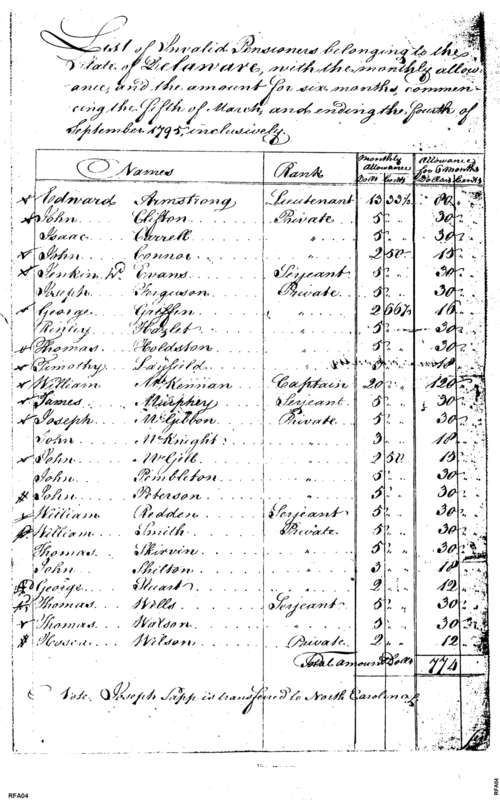 List of Invalid Pensioners belonging to the
State of Delaware, with the monthly allow-
ance, and the amount for six months, commen-
cing the fifth of March, and ending the fourth of
September 1795, inclusively.
Names Rank Monthly Allowance Dolls Cents Allowance for 6 months Dollars Cents
Edward Armstrong Lieutenant 13 33⅓ 80
John Clifton Private 5 30
Isaac Carrell " 5 30
John Connor " 2 50 15
Jenkin Evans Serjeant 5 30
Joseph Ferguson Private 5 30
George Griffen " 2 66⅔ 16
Hazlet " 5 30
Thomas Holdston " 5 30
Timothy Layfield " 3 18
William McKennan Captain 20 120
James Murphey Serjeant 5 30
Joseph McGibbon Private 5 30
John McKnight " 3 18
John McGill " 2 50 15
John Pembleton " 5 30
John Peterson " 5 30
William Redden Serjeant 5 30
William Smith Private 5 30
Thomas Skirvin " 5 30
John Shilton " 3 18
George Stuart " 2 12
Thomas Wells Serjeant 5 30
Thomas Watson " 5 30
Hosea Wilson Private 2 12
Total amount Dolls 774
Note. Joseph Sapp is transferred to North Carolina
RFA04
RFA04